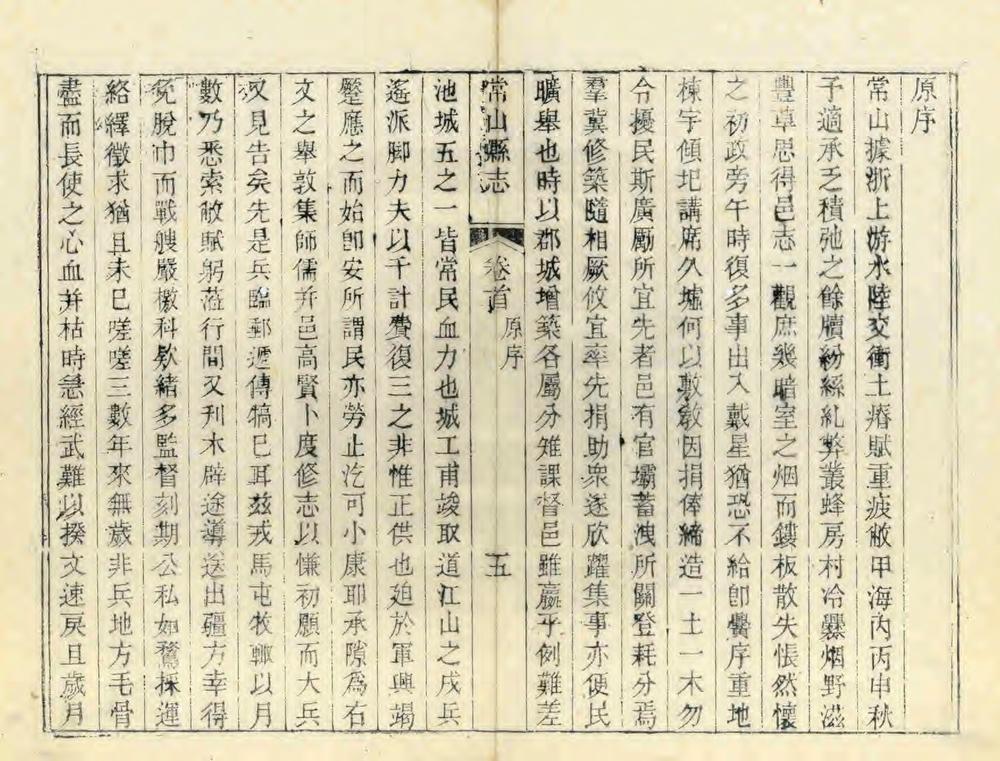 原序
常山據浙上游水陸交衝土瘠賦重疲敝甲海內丙申秋
予適承乏積弛之餘牘紛絲糺弊叢蜂房村冷爨烟野滋
豐草思得邑志一觀庶幾暗室之烟而鏤板散失悵然懷
之初政旁午時復多事出入戴星猶恐不給卽黌序重地
棟宇傾圯講席久墟何以敷敎因捐俸締造一土一木勿
令擾民斯廣勵所宜先者邑有官壩蓄洩所關登耗分焉
羣冀修築隨相厥攸宜率先捐助衆遂欣躍集事亦便民
曠舉也時以郡城增築各屬分雉課督邑雖嬴乎例難差
常山縣志
卷首
原序
五
池城五之一皆常民血力也城工甫竣取道江山之戍兵
遙派脚力夫以千計費復三之非惟正供也廹於軍興竭
蹷應之而始卽安所謂民亦勞止汔可小康耶承隙為右
文之舉敦集師儒幷邑高賢卜度修志以慊初願而大兵
又見告矣先是兵臨郵遞傳犒巳耳茲戎馬屯牧輙以月
數乃悉索敝賦躬蒞行間又刊木辟途導送出疆方幸得
免脫巾而戰艘嚴檄科欵緒多監督刻期公私如騖採運
絡繹徵求猶且未巳嗟嗟三數年來無歲非兵地方毛骨
盡而長使之心血幷枯時急經武難以揆文速戾且歲月